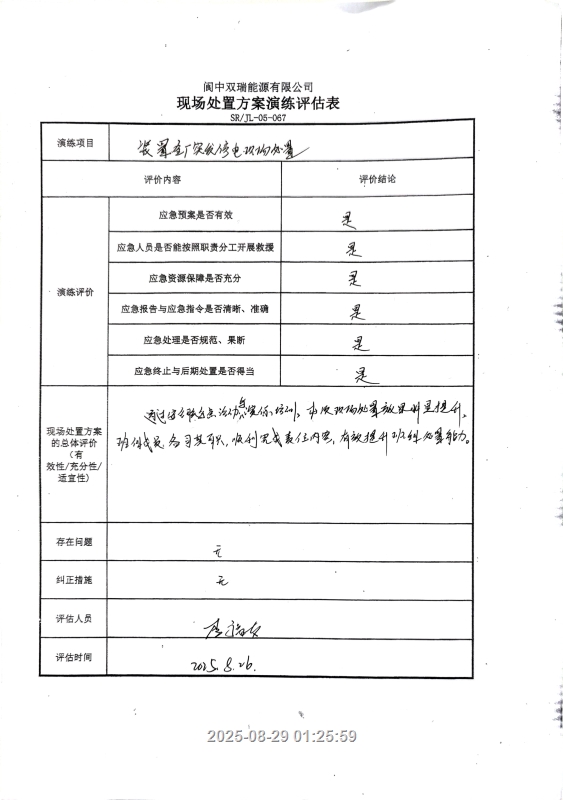 阆中双瑞能源有限公司
现场处置方案演练评估表
SR/JL-05-067
演练项目
装置全厂突发停电现场处置
评价内容
评价结论
演练评价
应急预案是否有效
是
应急人员是否能按照职责分工开展救援
是
应急资源保障是否充分
是
应急报告与应急指令是否清晰、准确
是
应急处理是否规范、果断
是
应急终止与后期处置是否得当
是
现场处置方案
的总体评价
（有
效性/充分性/
适宜性）
通过 培训，本次现场处置效果明显提升，
班组成员各司其职，顺利完成责任内容，有效提升班组处置能力。
存在问题
无
纠正措施
无
评估人员
评估时间
2025.8.26.
2025-08-29 01:25:59